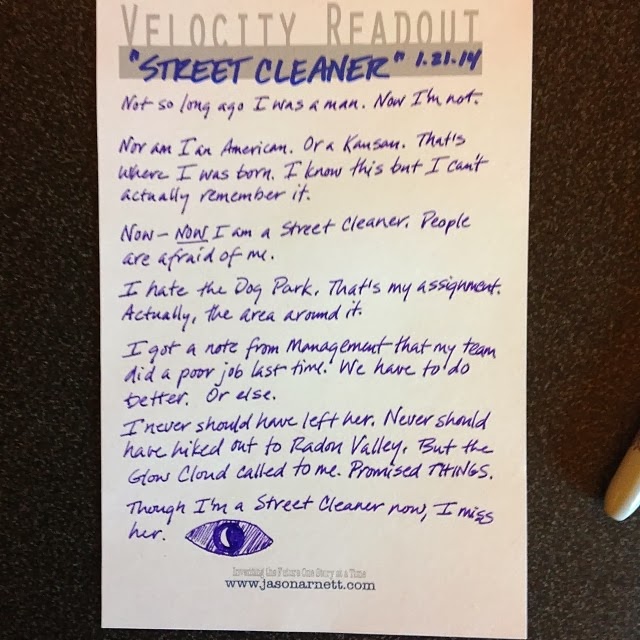 VELOCITY READOUT
"STREET CLEANER" 1.21.14
Not so long ago I was a man. Now I'm not.
Nor am I an American. Or a Kansan. That's
where I was born. I know this but I can't
actually remember it.
Now – NOW I am a Street Cleaner. People
are afraid of me.
I hate the Dog Park. That's my assignment.
Actually, the area around it.
I got a note from Management that my team
did a poor job last time. We have to do
better. Or else.
I never should have left her. Never should
have hiked out to Radon Valley. But the
Glow Cloud called to me. Promised THINGS.
Though I'm a Street Cleaner now, I miss
her.
Inventing the Future One Story at a Time
www.jasonarnett.com